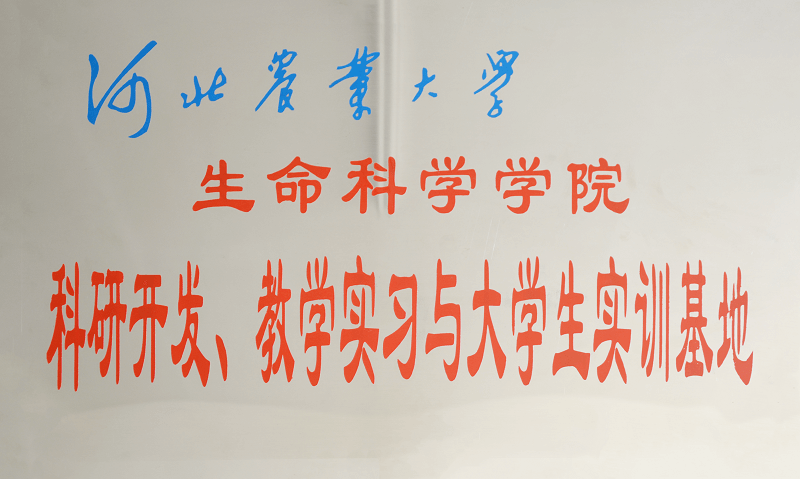 河北农業大学
生命科学学院
科研开发、教学实习与大学生实训基地